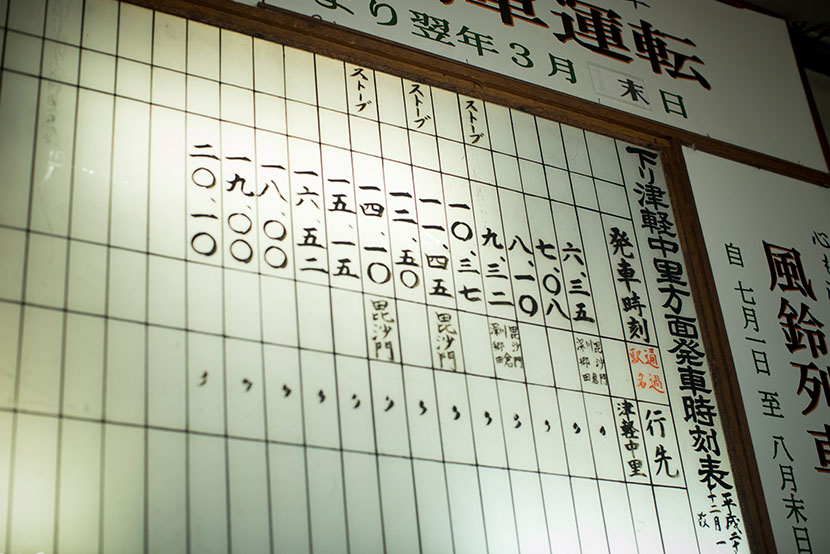 車運転
より翌年3月末日
下り津軽中里方面発車時刻表
平成二十
十二月一
改
発車時刻 通過駅名 行先
六.三五 毘沙門 川倉 深郷田 津軽中里
七.〇八 〃
八.一〇 〃
ストーブ 九.三二 毘沙門 川倉 深郷田 〃
一〇.三七 〃
ストーブ 一一.四五 毘沙門 〃
一二.五〇 〃
ストーブ 一四.一〇 毘沙門 〃
一五.一五 〃
一六.五二 〃
一八.〇〇 〃
一九.〇〇 〃
二〇.一〇 〃
風鈴列車
自 七月一日 至 八月末日